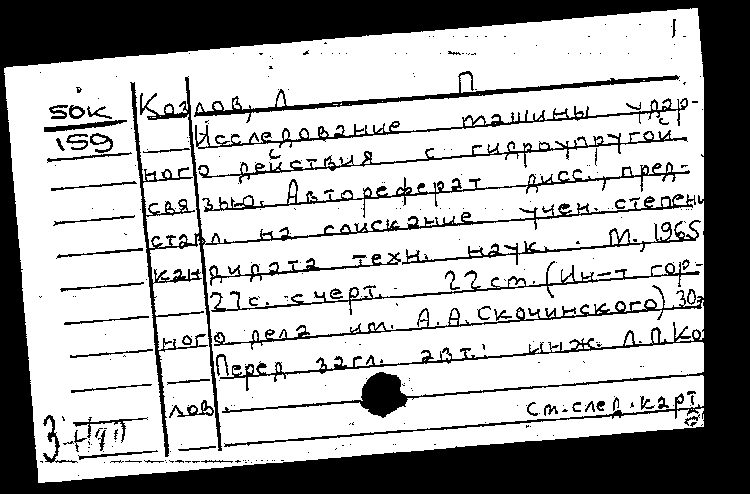 1
50к Козлов, Л П
159 Исследование машины удар-
ного действия с гидроупругой
связью. Автореферат дисс., пред-
ставл. на соискание учен. степени
кандидата техн. наук. М., 1965.
27с. с черт. 22 см. (Ин-т гор-
ного дела им. А.А. Скочинского). 
Перед загл. авт.: инж. Л.П. Коз
лов.
см. след. карт.
3